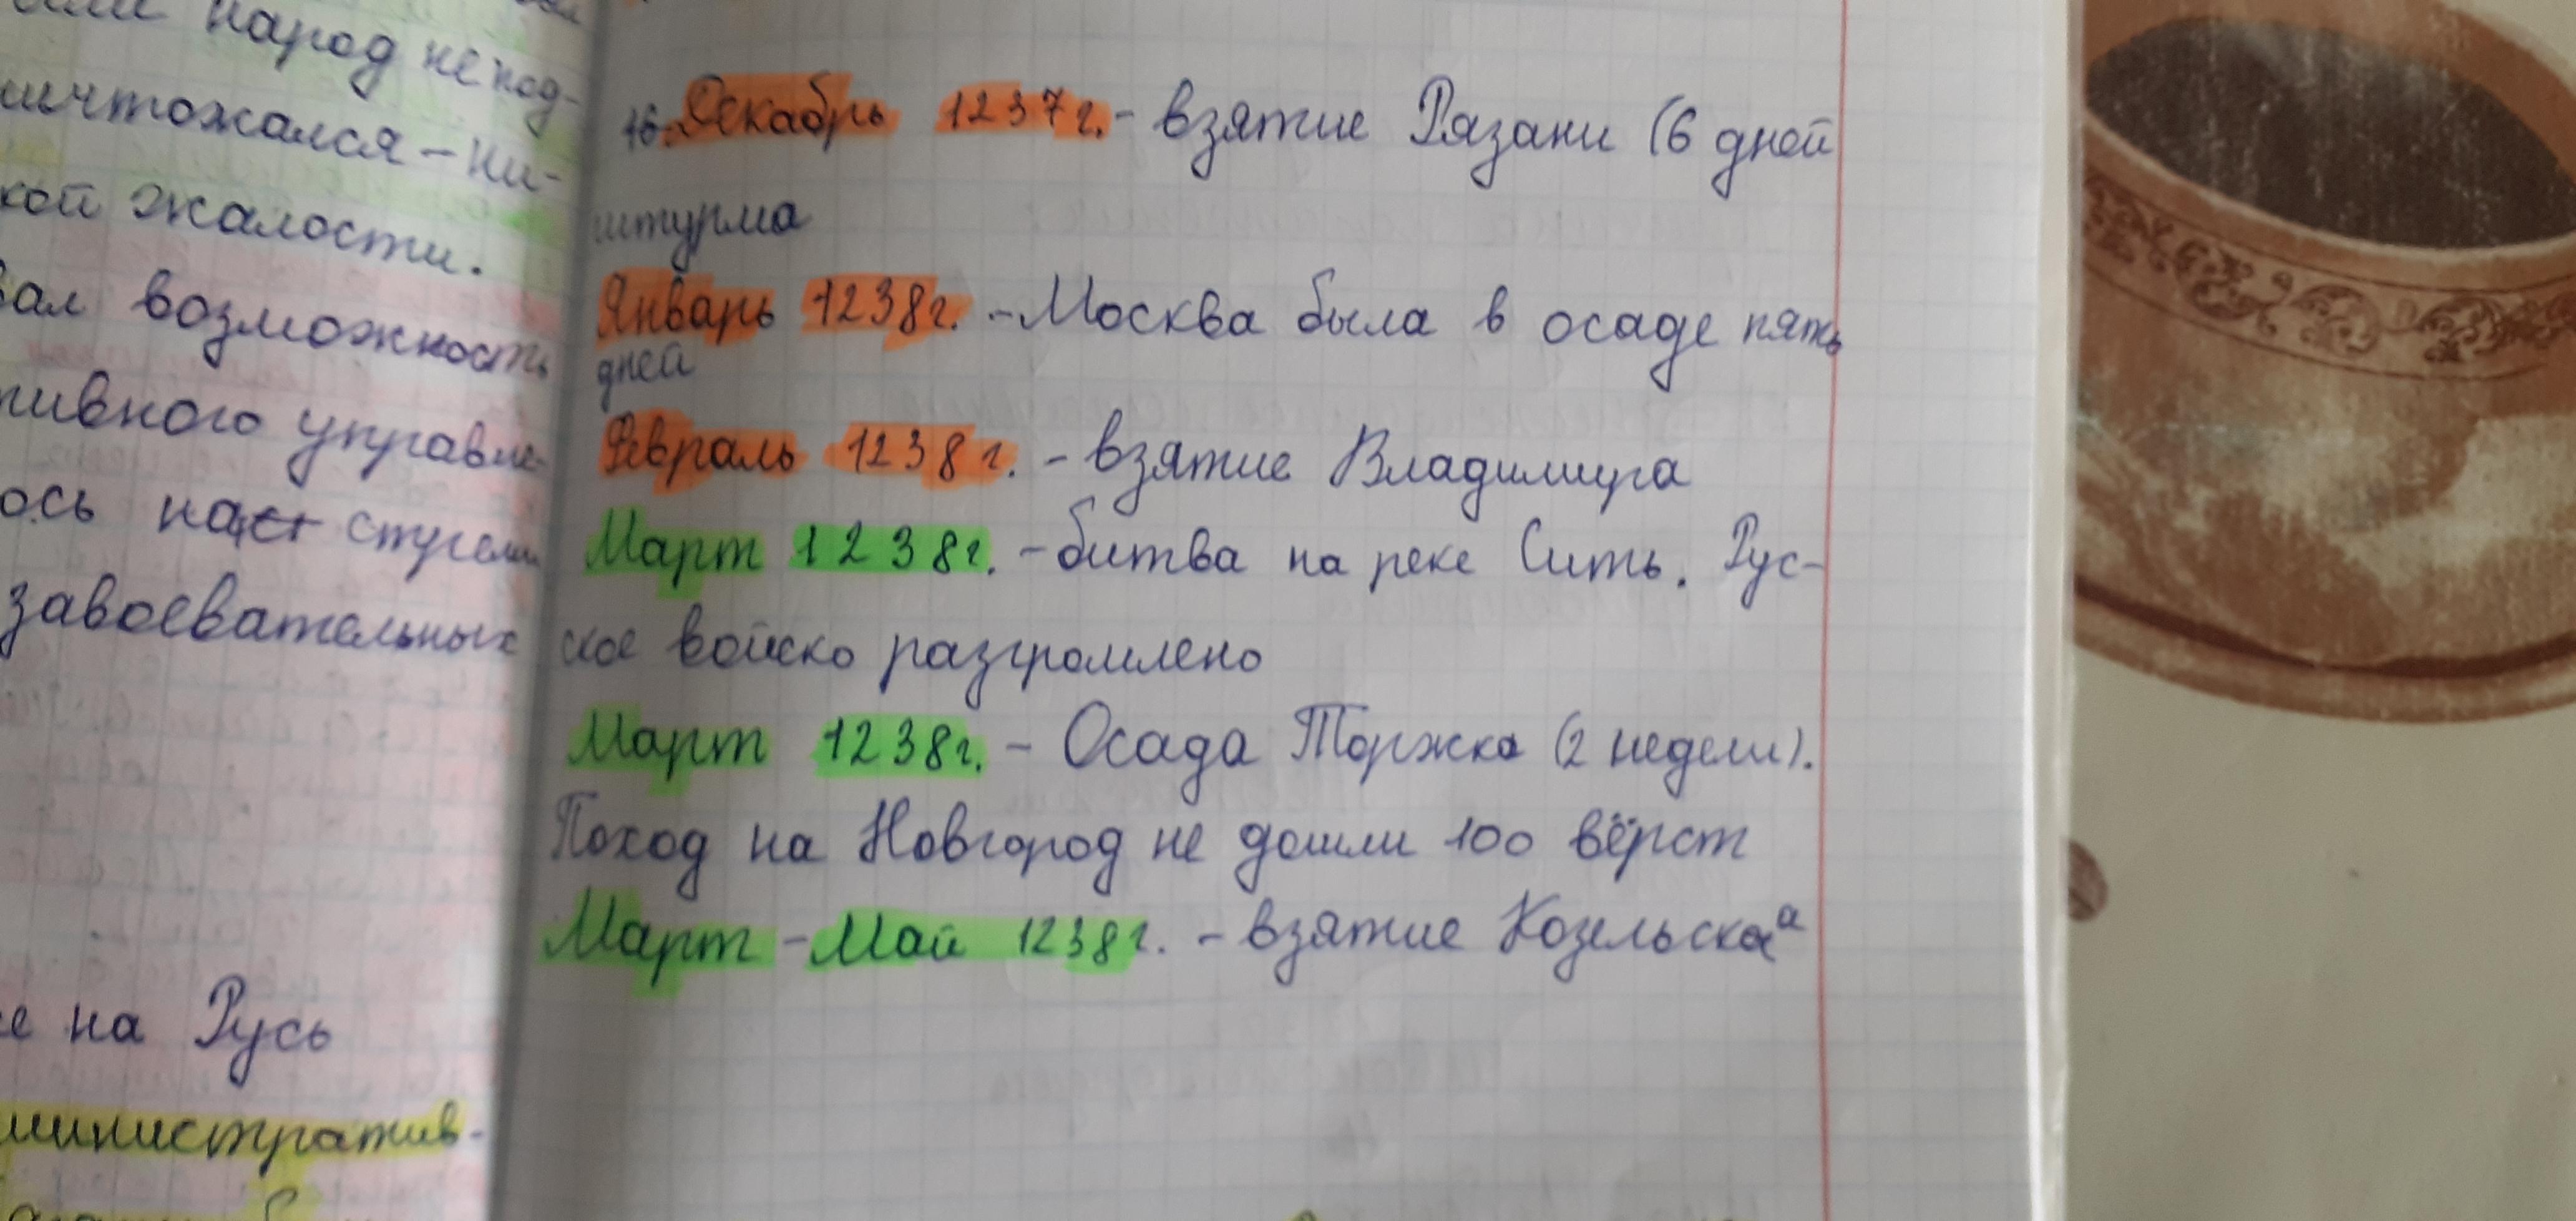 народ не под-
ничтожался – ни-
кой жалости.
вал возможность
тивного управле-
ось наст ступали
завоевательных
е на Русь
министратив-
16. Декабрь 1237г. - взятие Рязани (6 дней
штурма
Январь 1238г. - Москва была в осаде пять
дней
Февраль 1238г. - взятие Владимира
Март 1238г. - битва на реке Сить. Рус-
ское войско разгромлено
Март 1238г. - Осада Торжка (2 недели).
Поход на Новгород не дошли 100 вёрст
Март - Май 1238г. - взятие Козельска